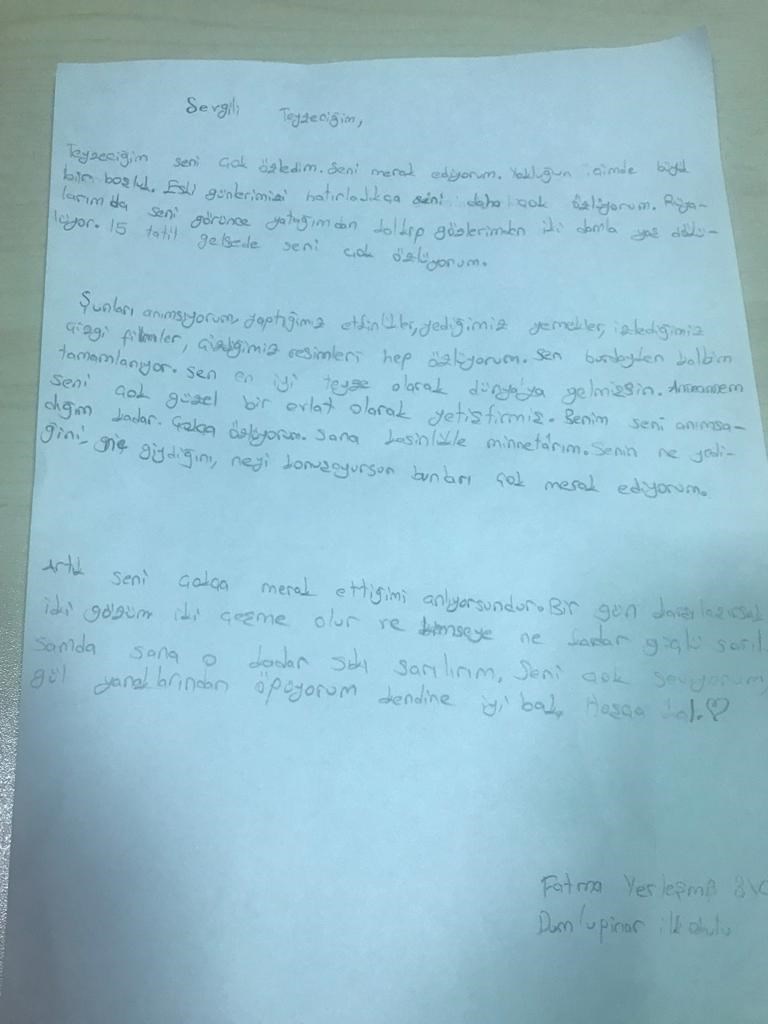 Sevgili Teyzeciğim,
Teyzeciğim seni çok özledim. Seni merak ediyorum. Yokluğun içimde büyük
bir boşluk. Eski günlerimizi hatırladıkça seni daha çok özlüyorum. Rüya-
larımda seni görünce yatağımdan kalkıp gözlerimden iki damla yaş dökü-
lüyor. 15 tatil gelsede seni çok özlüyorum.
Şunları anımsıyorum, yaptığımız etkinlikler, yediğimiz yemekler, izlediğimiz
çizgi filmler, çizdiğimiz resimleri hep özlüyorum. Sen burdayken kalbim
tamamlanıyor. Sen en iyi teyze olarak dünyaya gelmişsin. Anneannem
seni çok güzel bir evlat olarak yetiştirmiş. Benim seni anımsa-
dığım kadar. Çokça özlüyorum. Sana kesinlikle minnetarım. Senin ne yedi-
ğini, giydiğini, neyi konuşuyorsun bunları çok merak ediyorum.
Artık seni çokça merak ettiğimi anlıyorsundur. Bir gün karşılaşırsak
iki gözüm iki çeşme olur ve kimseye ne kadar güçlü sarıl
samda sana o kadar sıkı sarılırım, Seni çok seviyorum,
gül yanaklarından öpüyorum kendine iyi bak, Hoşça kal. ♡
Fatma 3\C
Dumlupınar ilkokulu